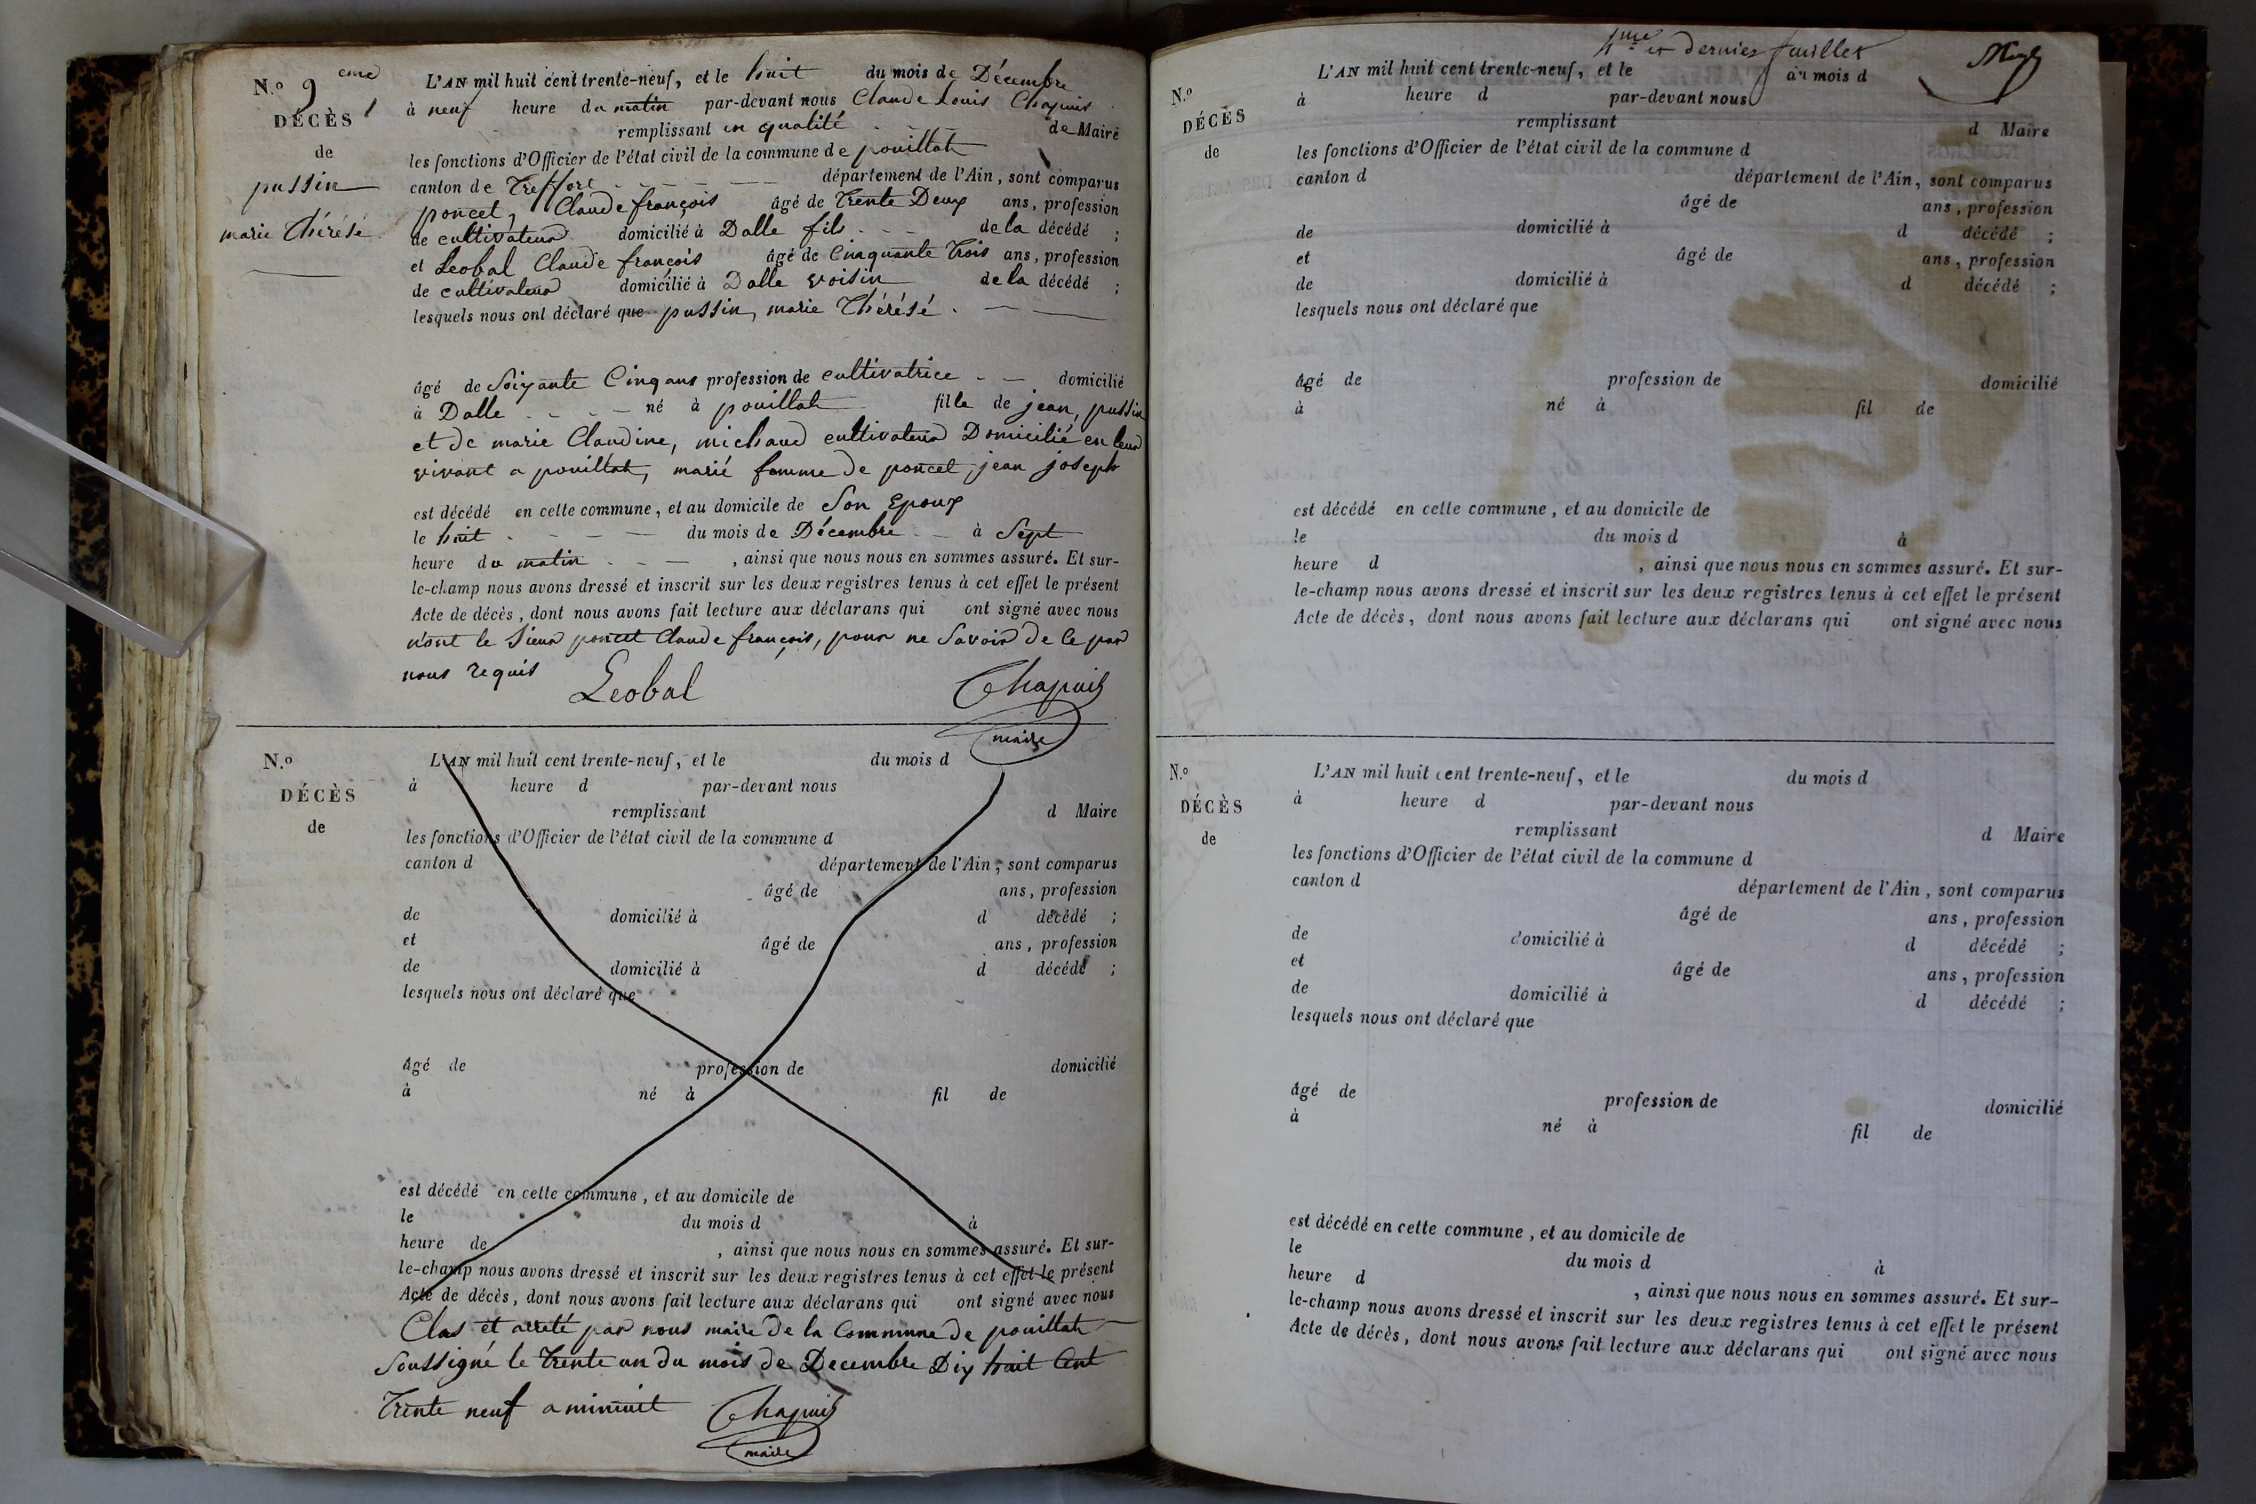 N.º 9 eme
DÉCÈS
de
pussin
marie thérésé
L'AN mil huit cent trente-neuf, et le huit du mois de Décembre
à neuf heure du matin par-devant nous Claude Louis Chapuis
remplissant en qualité de Maire
les fonctions d'Officier de l'état civil de la commune de pouillat
canton de Treffort département de l'Ain, sont comparus
poncet, Claude françois âgé de trente Deux ans, profession
de cultivateur domicilié à Dalle fils de la décédé ;
et Leobal Claude françois âgé de Cinquante trois ans, profession
de cultivateur domicilié à Dalle voisin de la décédé ;
lesquels nous ont déclaré que pussin, marie thérésé
âgé de Soixante Cinq ans profession de cultivatrice domicilié
à Dalle né à pouillat fille de jean, pussin
et de marie Claudine, michaud cultivateur Domicilié en leur
vivant a pouillat, marié famme de poncet jean joseph
est décédé en cette commune, et au domicile de Son Epoux
le huit du mois de Décembre à Sept
heure du matin , ainsi que nous nous en sommes assuré. Et sur-
le-champ nous avons dressé et inscrit sur les deux registres tenus à cet effet le présent
Acte de décès, dont nous avons fait lecture aux déclarans qui ont signé avec nous
n'ont le Sieur poncet Claude françois, pour ne Savoir de ce par
nous requis
Leobal Chapuis
maire
N.º
DÉCÈS
de
L'AN mil huit cent trente-neuf, et le du mois d
à heure d par-devant nous
remplissant d Maire
les fonctions d'Officier de l'état civil de la commune d
canton d département de l'Ain, sont comparus
âgé de ans, profession
de domicilié à d décédé ;
et âgé de ans, profession
de domicilié à d décédé ;
lesquels nous ont déclaré que
âgé de profession de domicilié
à né à fil de
est décédé en cette commune, et au domicile de
le du mois d à
heure de , ainsi que nous nous en sommes assuré. Et sur-
le-champ nous avons dressé et inscrit sur les deux registres tenus à cet effet le présent
Acte de décès, dont nous avons fait lecture aux déclarans qui ont signé avec nous
Clos et arreté par nous maire de la Commune de pouillat
Soussigné le trente un du mois de Decembre Dix huit Cent
trente neuf a minuit Chapuis
maire
4me et dernier feuillet
N.º
DÉCÈS
de
L'AN mil huit cent trente-neuf, et le du mois d
à heure d par-devant nous
remplissant d Maire
les fonctions d'Officier de l'état civil de la commune d
canton d département de l'Ain, sont comparus
âgé de ans, profession
de domicilié à d décédé ;
et âgé de ans, profession
de domicilié à d décédé ;
lesquels nous ont déclaré que
âgé de profession de domicilié
à né à fil de
est décédé en cette commune, et au domicile de
le du mois d à
heure d , ainsi que nous nous en sommes assuré. Et sur-
le-champ nous avons dressé et inscrit sur les deux registres tenus à cet effet le présent
Acte de décès, dont nous avons fait lecture aux déclarans qui ont signé avec nous
N.º
DÉCÈS
de
L'AN mil huit cent trente-neuf, et le du mois d
à heure d par-devant nous
remplissant d Maire
les fonctions d'Officier de l'état civil de la commune d
canton d département de l'Ain, sont comparus
âgé de ans, profession
de domicilié à d décédé ;
et âgé de ans, profession
de domicilié à d décédé ;
lesquels nous ont déclaré que
âgé de profession de domicilié
à né à fil de
est décédé en cette commune, et au domicile de
le du mois d à
heure d , ainsi que nous nous en sommes assuré. Et sur-
le-champ nous avons dressé et inscrit sur les deux registres tenus à cet effet le présent
Acte de décès, dont nous avons fait lecture aux déclarans qui ont signé avec nous